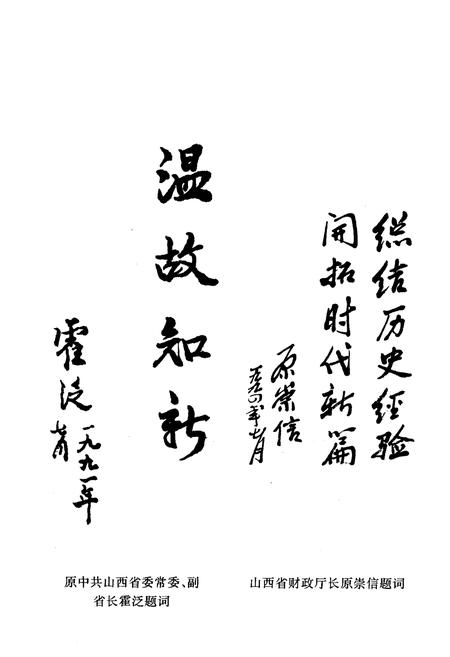 総结历史經验
開拓时代新篇
原崇信
温故知新
霍泛
一九九一年
山西省财政厅长原崇信题词
原中共山西省委常委、副
省长霍泛题词